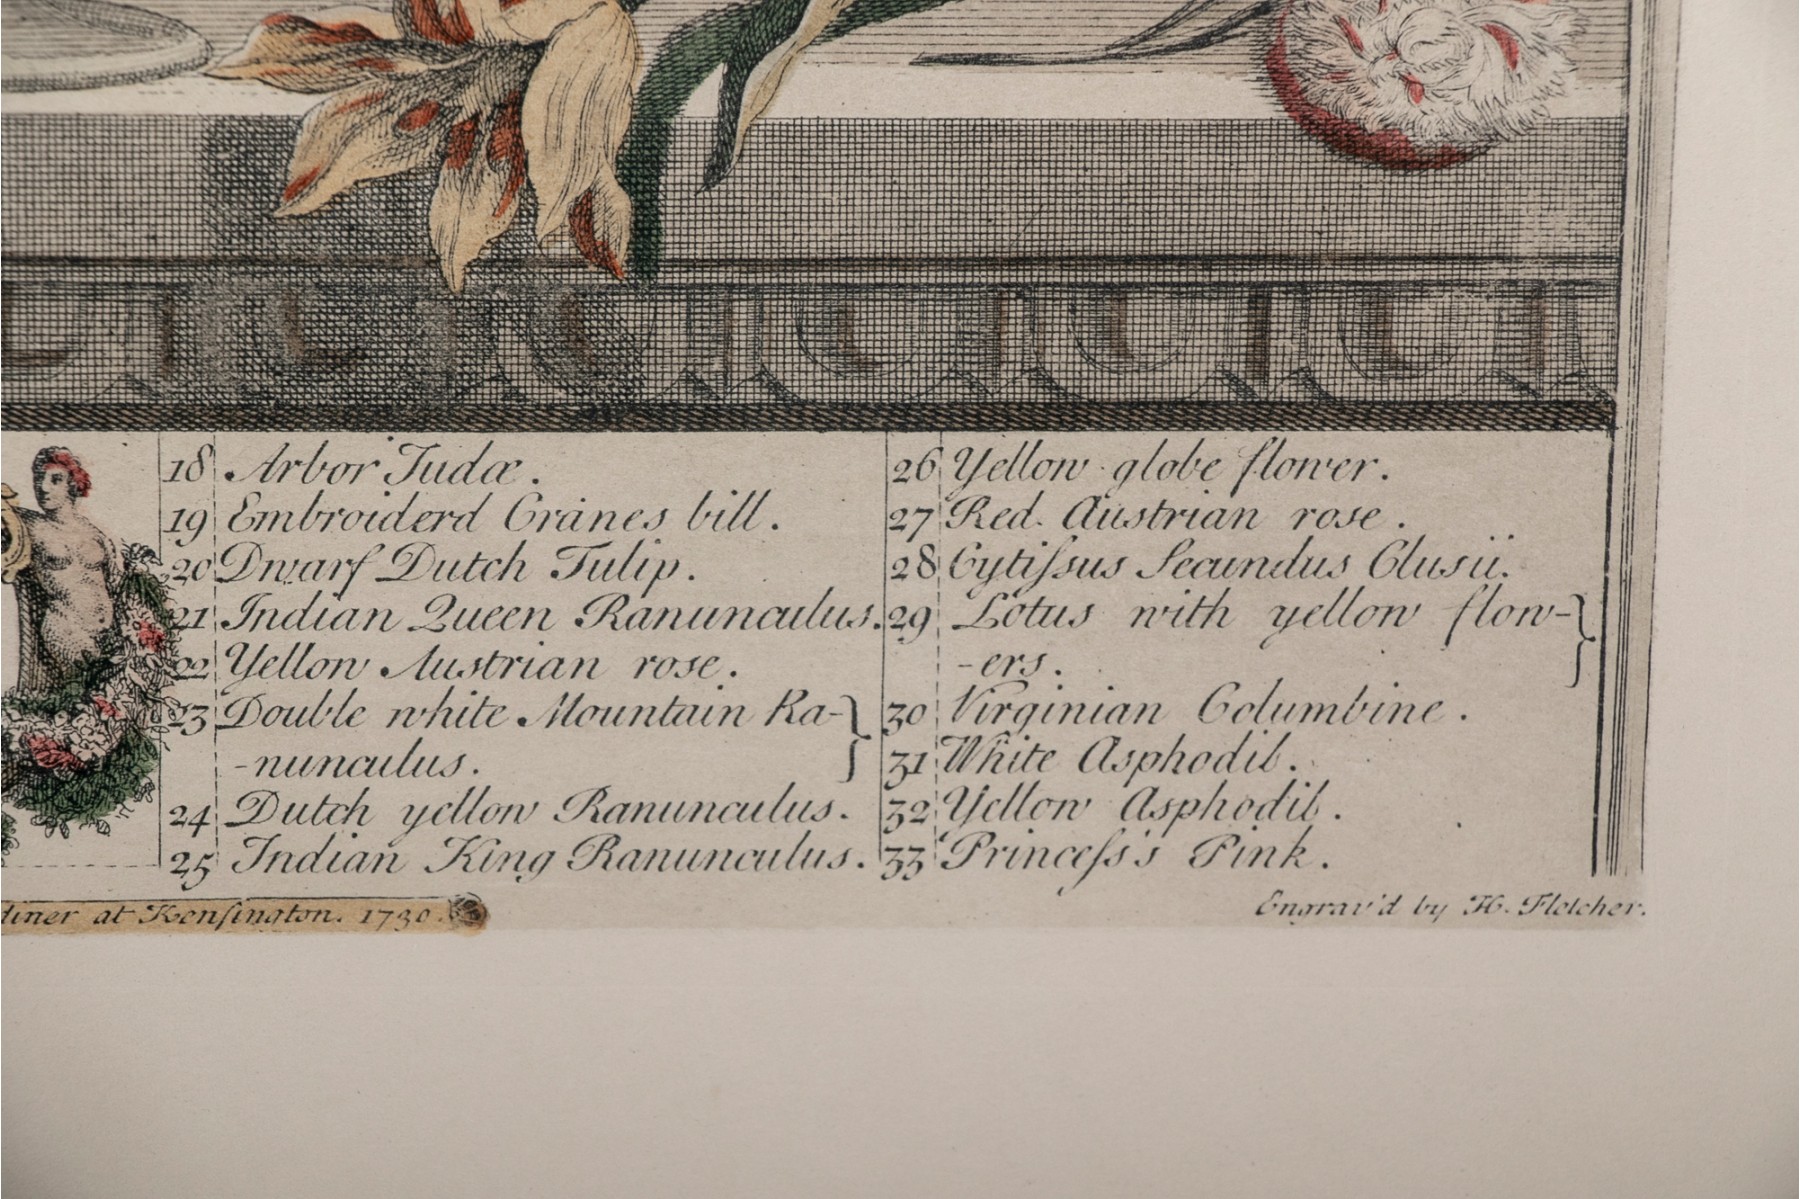 18 Arbor Judæ.
19 Embroiderd Cranes bill.
20 Dwarf Dutch Tulip.
21 Indian Queen Ranunculus.
22 Yellow Austrian rose.
23 Double white Mountain Ra-
-nunculus.
24 Dutch yellow Ranunculus.
25 Indian King Ranunculus.
26 Yellow globe flower.
27 Red Austrian rose.
28 Cytiſsus Secundus Clusii.
29 Lotus with yellow flow-
-ers.
30 Virginian Columbine.
31 White Asphodil.
32 Yellow Asphodil.
33 Princeſs's Pink.
diner at Kenſington. 1730.
Engrav'd by H. Fletcher.